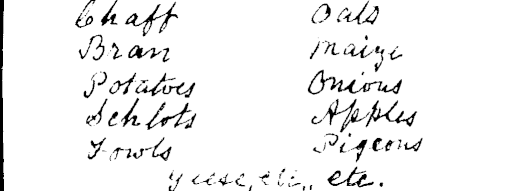 Chaff Oats
Bran Maize
Potatoes Onions
Schlots Apples
Fowls Pigeons
Geese, etc., etc.